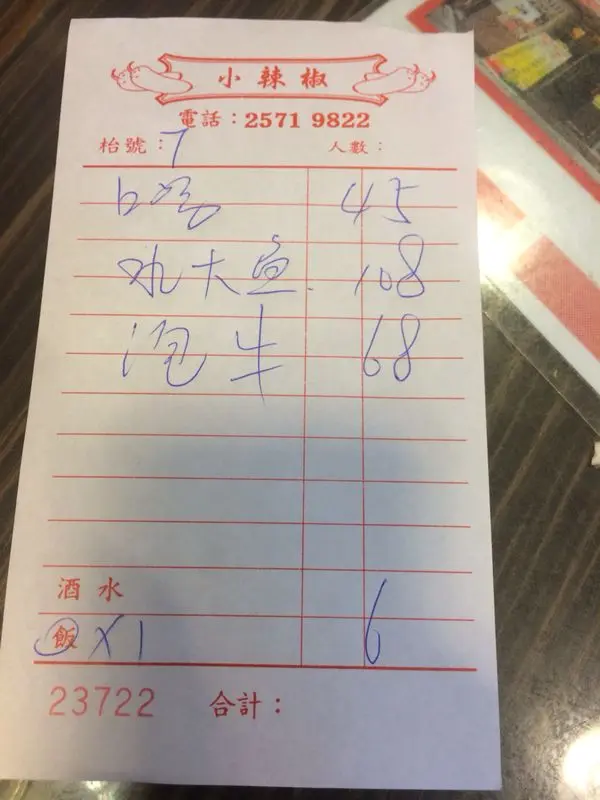 小辣椒
電話：2571 9822
枱號：7 人數：
口 45
水大鱼 108
泡牛 68
酒水
飯 X1 6
23722 合計：